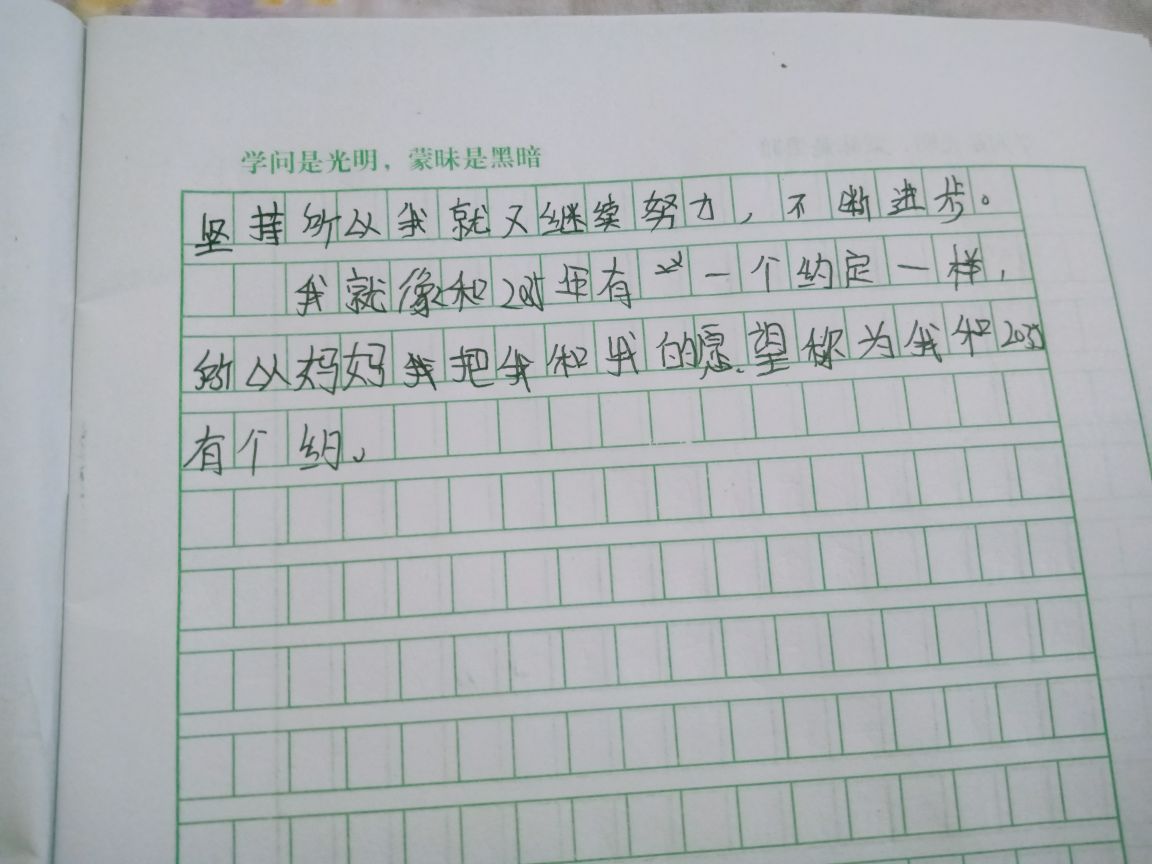 学问是光明，蒙昧是黑暗
坚持所以我就又继续努力，不断进步。
我就像和2035年有一个约定一样，
所以妈妈我把我和我的愿望称为我和2035
有个约。